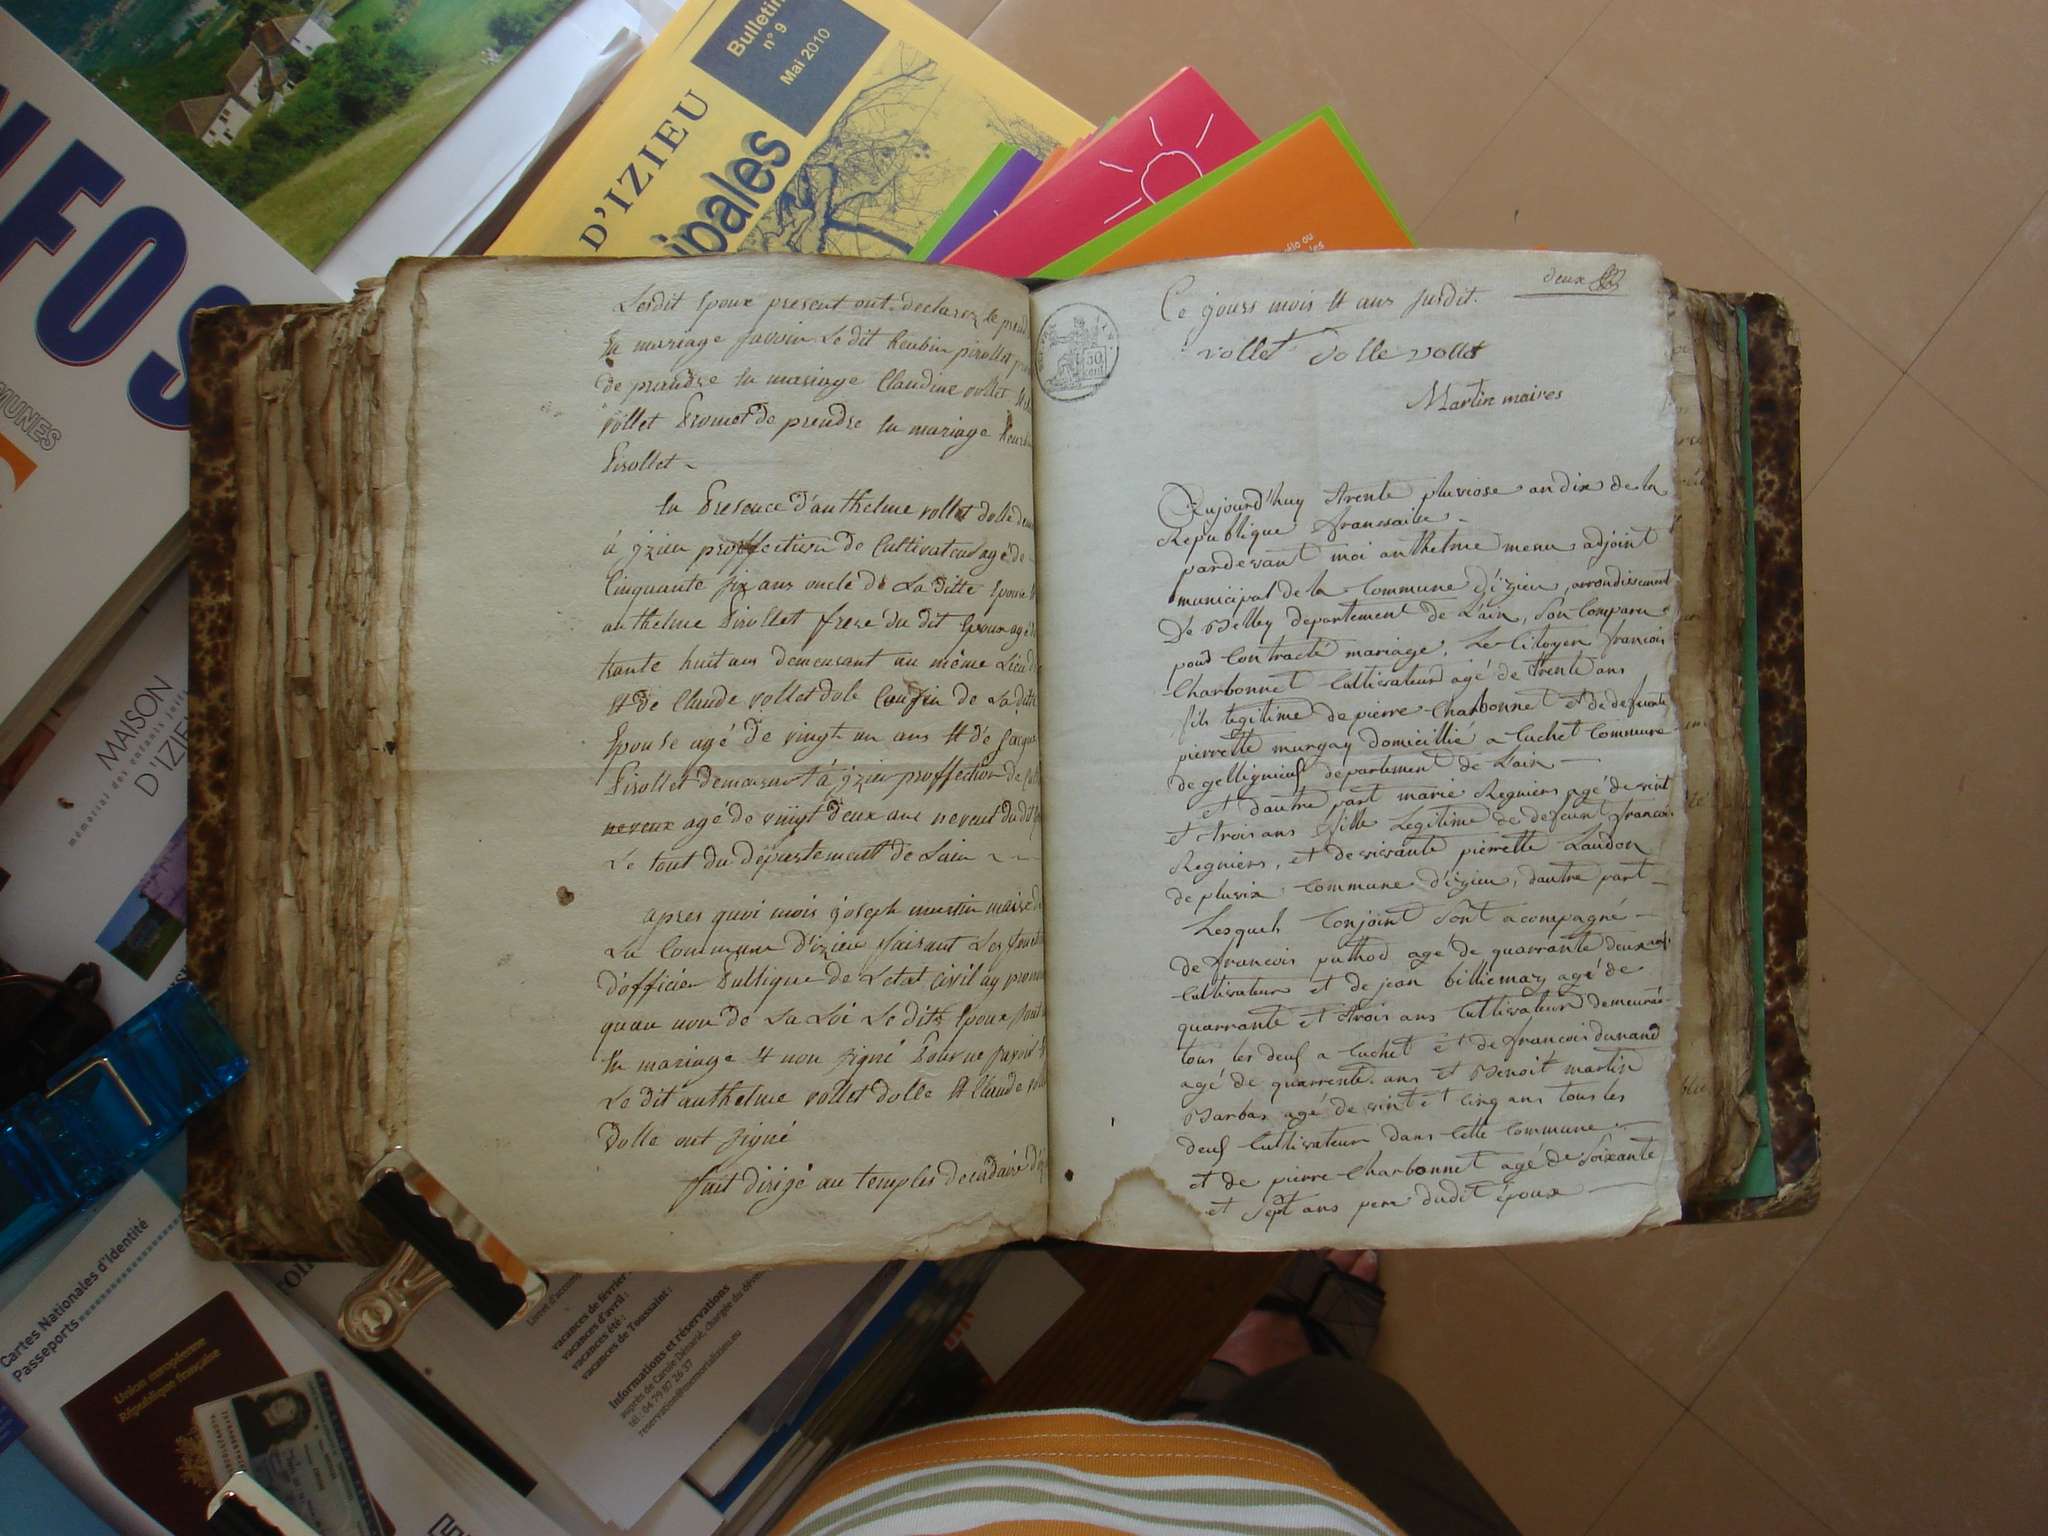 INFOS
MUNES
Bulletin
n° 9
Mai 2010
D'IZIEU
ipales
MAISON
D'IZIE
Lesdit Epoux present ont declarez se prend
En mariage savoir Le dit heubin pirollet
de prendre En mariage Claudine vollet
vollet Promet de prendre En mariage
Pirollet ~
En Presence d'anthelme vollet dolle
à jzieu proffection de Cultivateur agé de
Cinquante six ans oncle de La ditte Epouse
anthelme Pirollet frere du dit Epoux agé
trante huit ans demeurant au même Lieu
Et de Claude vollet dole Cousin de La ditte
Epouse agé de vingt un ans Et de Jacque
Pirollet demeurant à jzieu proffection de
neveux agé de viingt deux ans neveut du dit
Le tout du departement de Lain ~ ~
apres quoi mois joseph martin maire
La Commune d'izieu faisant Les
d'officier Publique de Letat civil ay
quau non de La Loi Le dits Epoux sont
En mariage Et non signé Pour ne savoir
Le dit anthelme vollet dolle Et Claude
dolle ont signé
fait dirigé au temples decadaire
deux
Ce jours mois Et ans susdit.
vollet dolle vollet
Martin maires
50
cent
Aujourd'huy trente pluviose an dix de la
Republique francaise -
pardevant moi anthelme menu adjoint
municipal de la Commune d'izieu, arrondissement
De Belley departement de Lain, Son Comparu
pour Contracté mariage, Le Citoyen francois
Charbonnet Cultivateur agé de trente ans
fils legitime de pierre Charbonnet et de defunte
pierrette murgay domicillié a Cuchet Commune
de gellignieuf departement de Lain —
et dautre part marie Regniers agé de vint
et trois ans fille Legitime de defeunt francoi
Regniers, et de vivante pierrette Laudon
de pluvix Commune d'izieu, dautre part —
Lesquels Conjoint Sont acompagné —
de francois puthod agé de quarrante deux ans
Cultivateur et de jean billiemaz agé de
quarrante et trois ans Cultivateur demeurés
tous les deuf a Cuchet et de francois dunand
agé de quarrente ans et Benoit martin
Barbaz agé de vint et Cinq ans tous les
deuf Cultivateur dans Cette Commune —
et de pierre Charbonnet agé de Soixante
et Sept ans pere dudit époux —
Cartes Nationales d'Identité
Passeports
Union européenne
République française
vacances de février
vacances d'avril :
vacances été :
vacances de Toussaint :
Informations et réservations
auprès de Carole Démarié, chargée du
tél : 04 79 87 26 37
reservation@memorializieu.eu